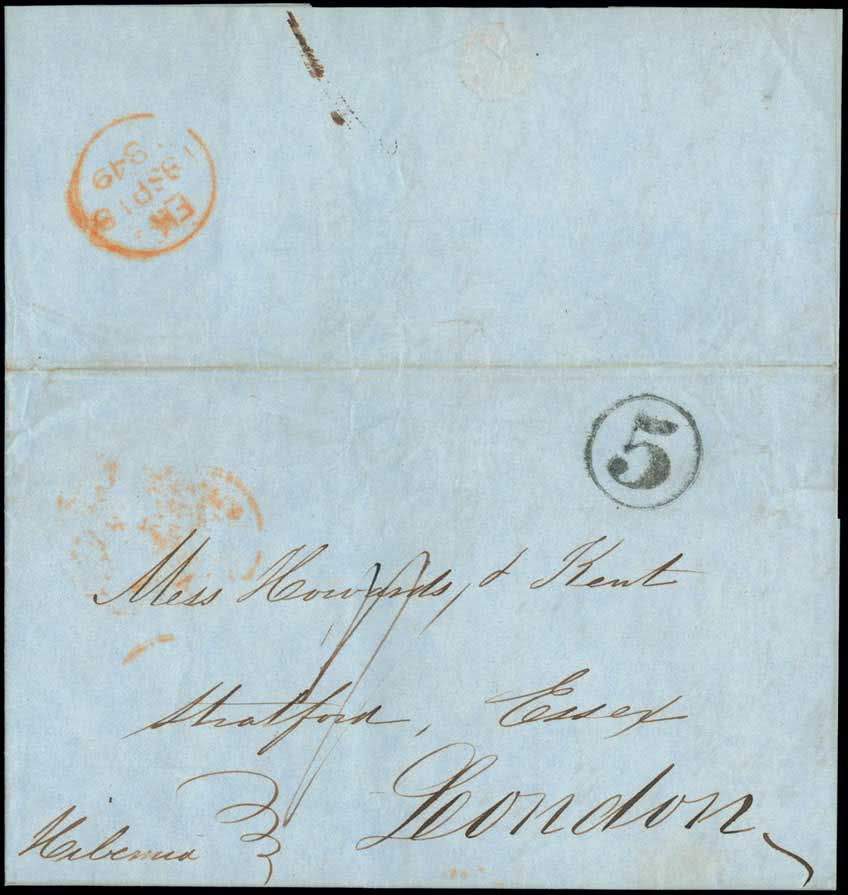 EK
18 SP 18
1849
5
Mess Howards, & Kent
Stratford, Essex
London
Hibernia